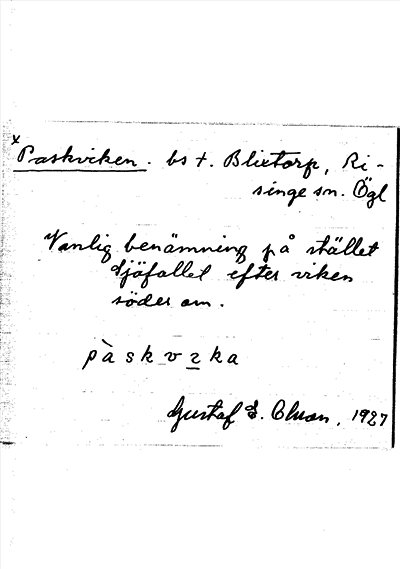 x Paskviken. bs t. Blixtorp, Ri-
singe sn. Ögl
Vanlig benämning på stället
Sjöfallet efter viken
söder om.
pàskvıka
Gustaf E. 1927